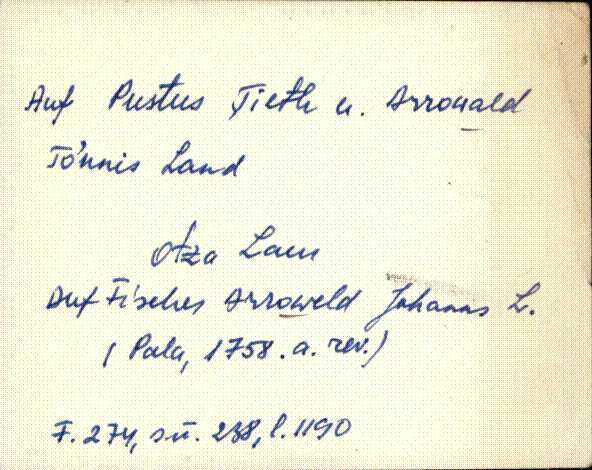 Auf Pustus Tieth u. Arrowald
Tönnis Land
Aza Laur
Auf Fischer Arroweld Johanns L.
(Pala, 1758. a. rev.)
F. 274, sü. 238, l. 1190